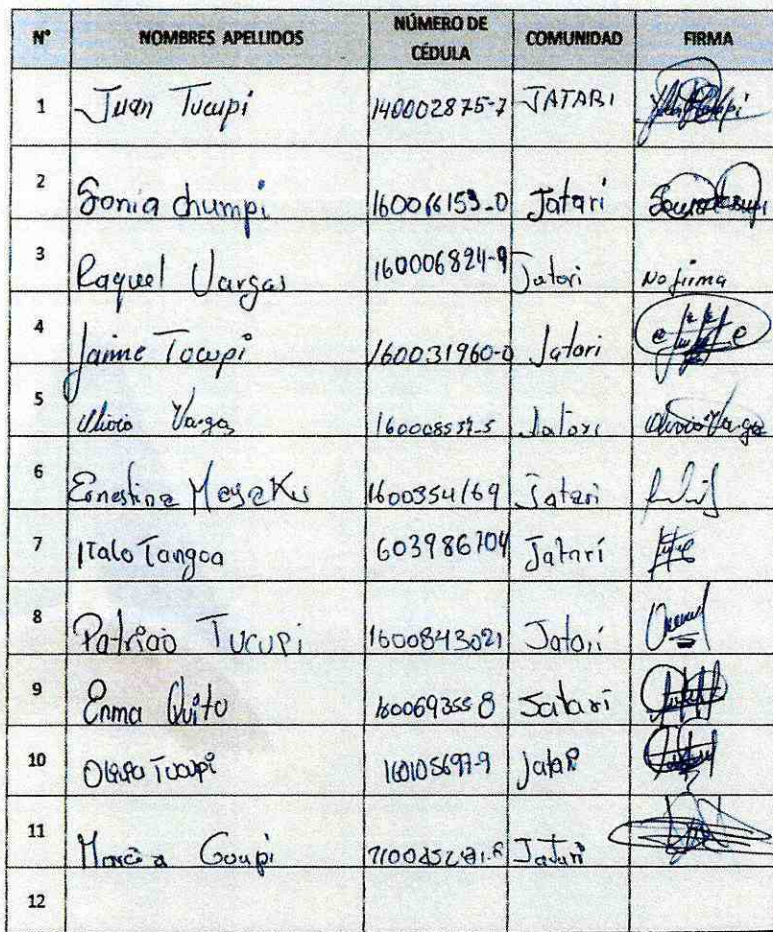 N° NOMBRES APELLIDOS NÚMERO DE CÉDULA COMUNIDAD FIRMA
1 Juan Tucupi 140002875-7 JATARI
2 Sonia chumpi 160016153-0 Jatari
3 Raquel Vargas 160006824-9 Jatari No firma
4 Jaime Tucupi 160031960-0 Jatari
5 Vargas 160008537-5 Jatari
6 Ernestina 1600354169 Jatari
7 Italo Tangoa 603986704 Jatari
8 Patricio Tucupi 1600843021 Jatari
9 Enma Quito 160069355 8 Jatari
10 Tucupi 160105697-9 Jatari
11 Jatari
12